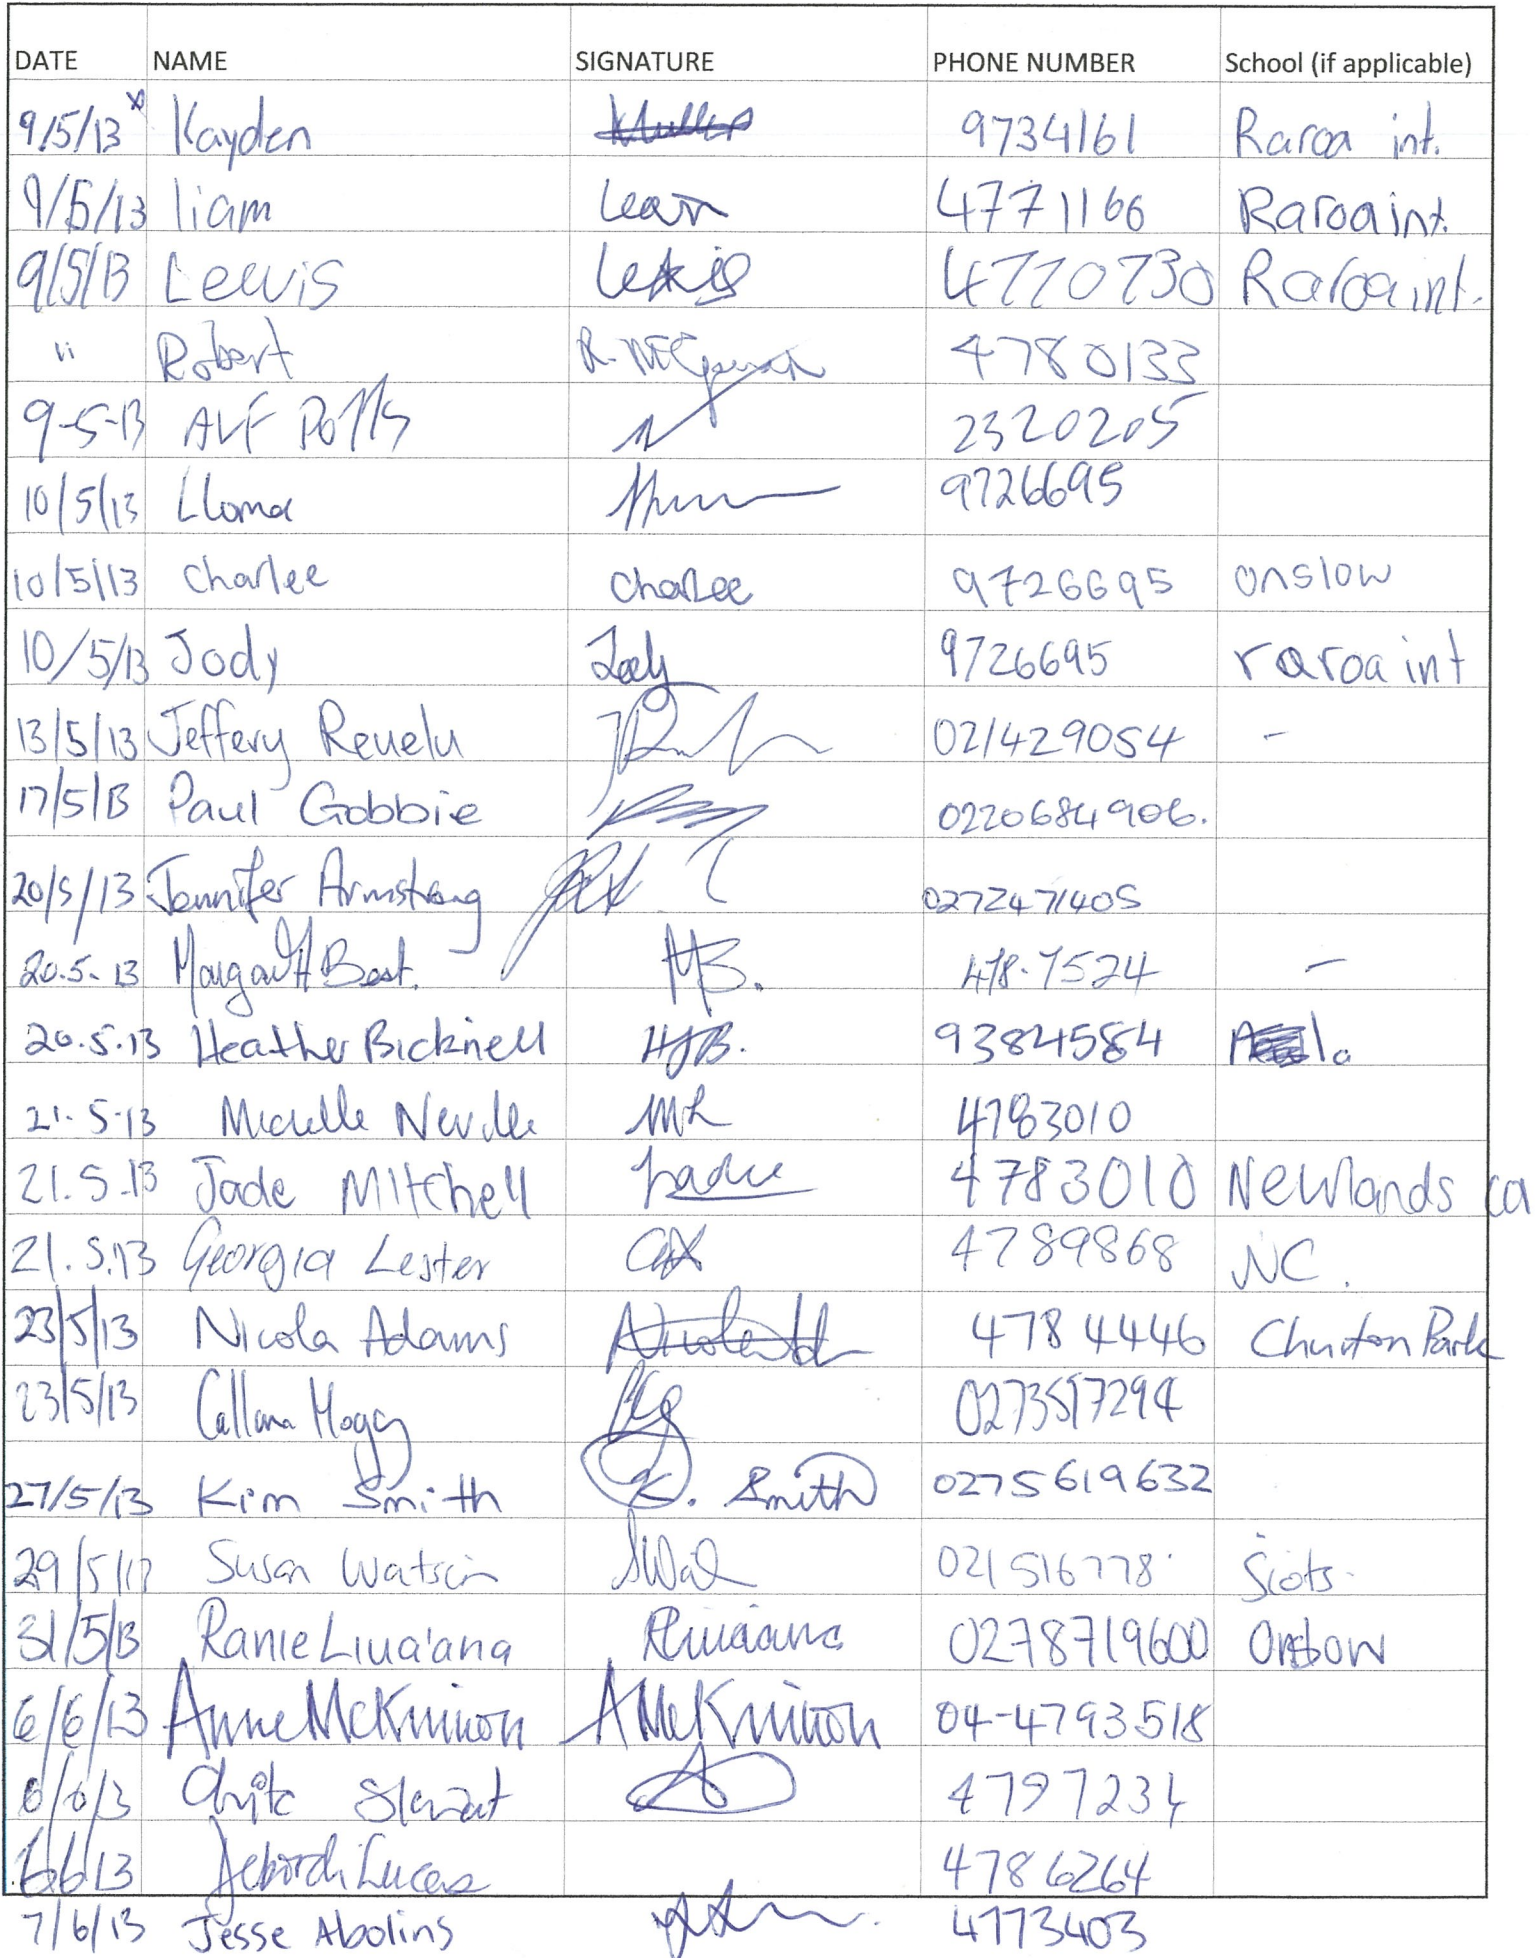 DATE NAME SIGNATURE PHONE NUMBER School (if applicable)
9/5/13 x Kayden 9734161 Raroa int.
9/5/13 liam Leam 4771166 Raroa int.
9/5/13 Lewis Lewis 4770730 Raroa int.
" Robert 4780133
9-5-13 ALF 2320205
10/5/13 9726695
10/5/13 Charlee Charlee 9726695 onslow
10/5/13 Jody Jody 9726695 raroa int
13/5/13 Jeffery 021429054 -
17/5/13 Paul Gobbie 02206841906.
20/5/13 Jennifer Armstrong 0272471405
20.5.13 Best. MB. 478-7524 -
20.5.13 Heather Bicknell HJB. 9384584
21.5.13 Michelle Neville 4783010
21.5.13 Jade Mitchell Jade 4783010 Newlands
21.5.13 Georgia Lester 4789868 NC.
23/5/13 Nicola Adams 4784446 Churton Park
23/5/13 Hogg
27/5/13 Kim Smith K. Smith 0275619632
29/5/13 Susan Watson 021516778 Scots
31/5/13 Ranie Liua'ana 0278719600 Onslow
6/6/13 Anne McKinnon A McKinnon 04-4793518
479
6/6/13 Lucas 4786264
7/6/13 Jesse Abolins 4773403